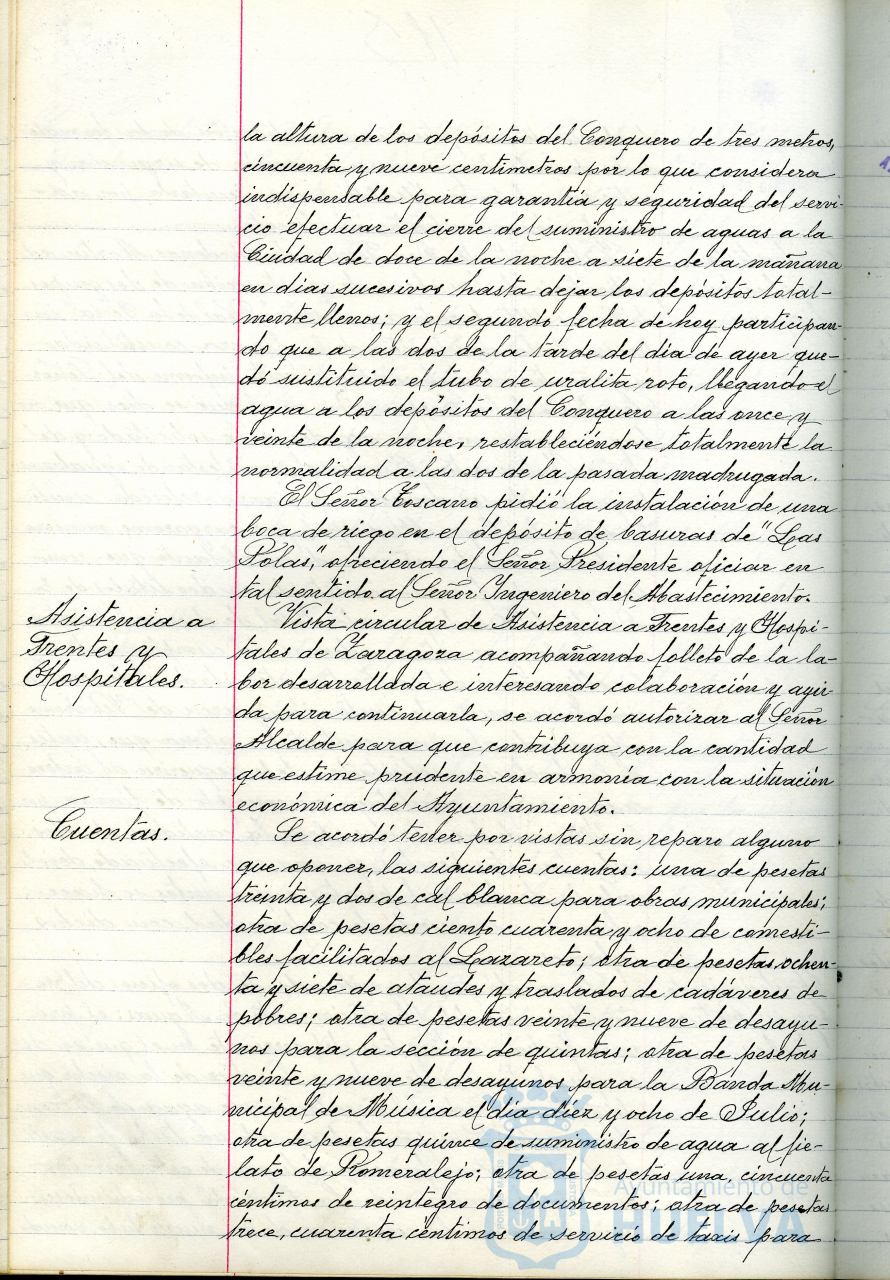 la altura de los depósitos del Conquero de tres metros,
cincuenta y nueve centímetros por lo que considera
indispensable para garantía y seguridad del servi-
cio efectuar el cierre del suministro de aguas a la
Ciudad de doce de la noche a siete de la mañana
en dias sucesivos hasta dejar los depósitos total-
mente llenos; y el segundo fecha de hoy participan-
do que a las dos de la tarde del dia de ayer que-
dó sustituido el tubo de uralita roto, llegando el
agua a los depósitos del Conquero a las once y
veinte de la noche, restableciéndose totalmente la
normalidad a las dos de la pasada madrugada.
El Señor Toscano pidió la instalación de una
boca de riego en el depósito de basuras de "Las
Polas," ofreciendo el Señor Presidente oficiar en
tal sentido al Señor Ingeniero del Abastecimiento.
Asistencia a
Frentes y
Hospitales.
Vista circular de Asistencia a Frentes y Hospi-
tales de Zaragoza acompañando folleto de la la-
bor desarrollada e interesando colaboración y ayu-
da para continuarla, se acordó autorizar al Señor
Alcalde para que contribuya con la cantidad
que estime prudente en armonía con la situación
económica del Ayuntamiento.
Cuentas.
Se acordó tener por vistas sin reparo alguno
que oponer, las siguientes cuentas: una de pesetas
treinta y dos de cal blanca para obras municipales;
otra de pesetas ciento cuarenta y ocho de comesti-
bles facilitados al Lazareto; otra de pesetas ochen-
ta y siete de ataudes y traslados de cadáveres de
pobres; otra de pesetas veinte y nueve de desayu-
nos para la sección de quintas; otra de pesetas
veinte y nueve de desayunos para la Banda Mu-
nicipal de Música el día diez y ocho de Julio;
otra de pesetas quince de suministro de agua al fie-
lato de Romeralejo; otra de pesetas una, cincuenta
céntimos de reintegro de documentos; otra de pesetas
trece, cuarenta céntimos de servicio de taxis para
Ayuntamiento de
HUELVA